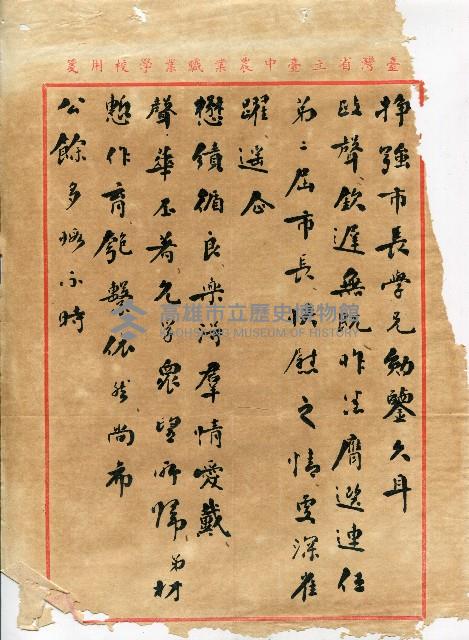 臺灣省立臺中農業職業學校用箋
掙強市長學兄勛鑒久耳
政聲欽遲無既昨悉膺選連任
第二屆市長快慰之情更深雀
躍遙企
懋績循良樂得羣情愛戴
聲華丕著允孚眾望所歸弟材
慙作育匏繫依然尚布
公餘多 示時
高雄市立歷史博物館
KAOHSIUNG MUSEUM OF HISTORY